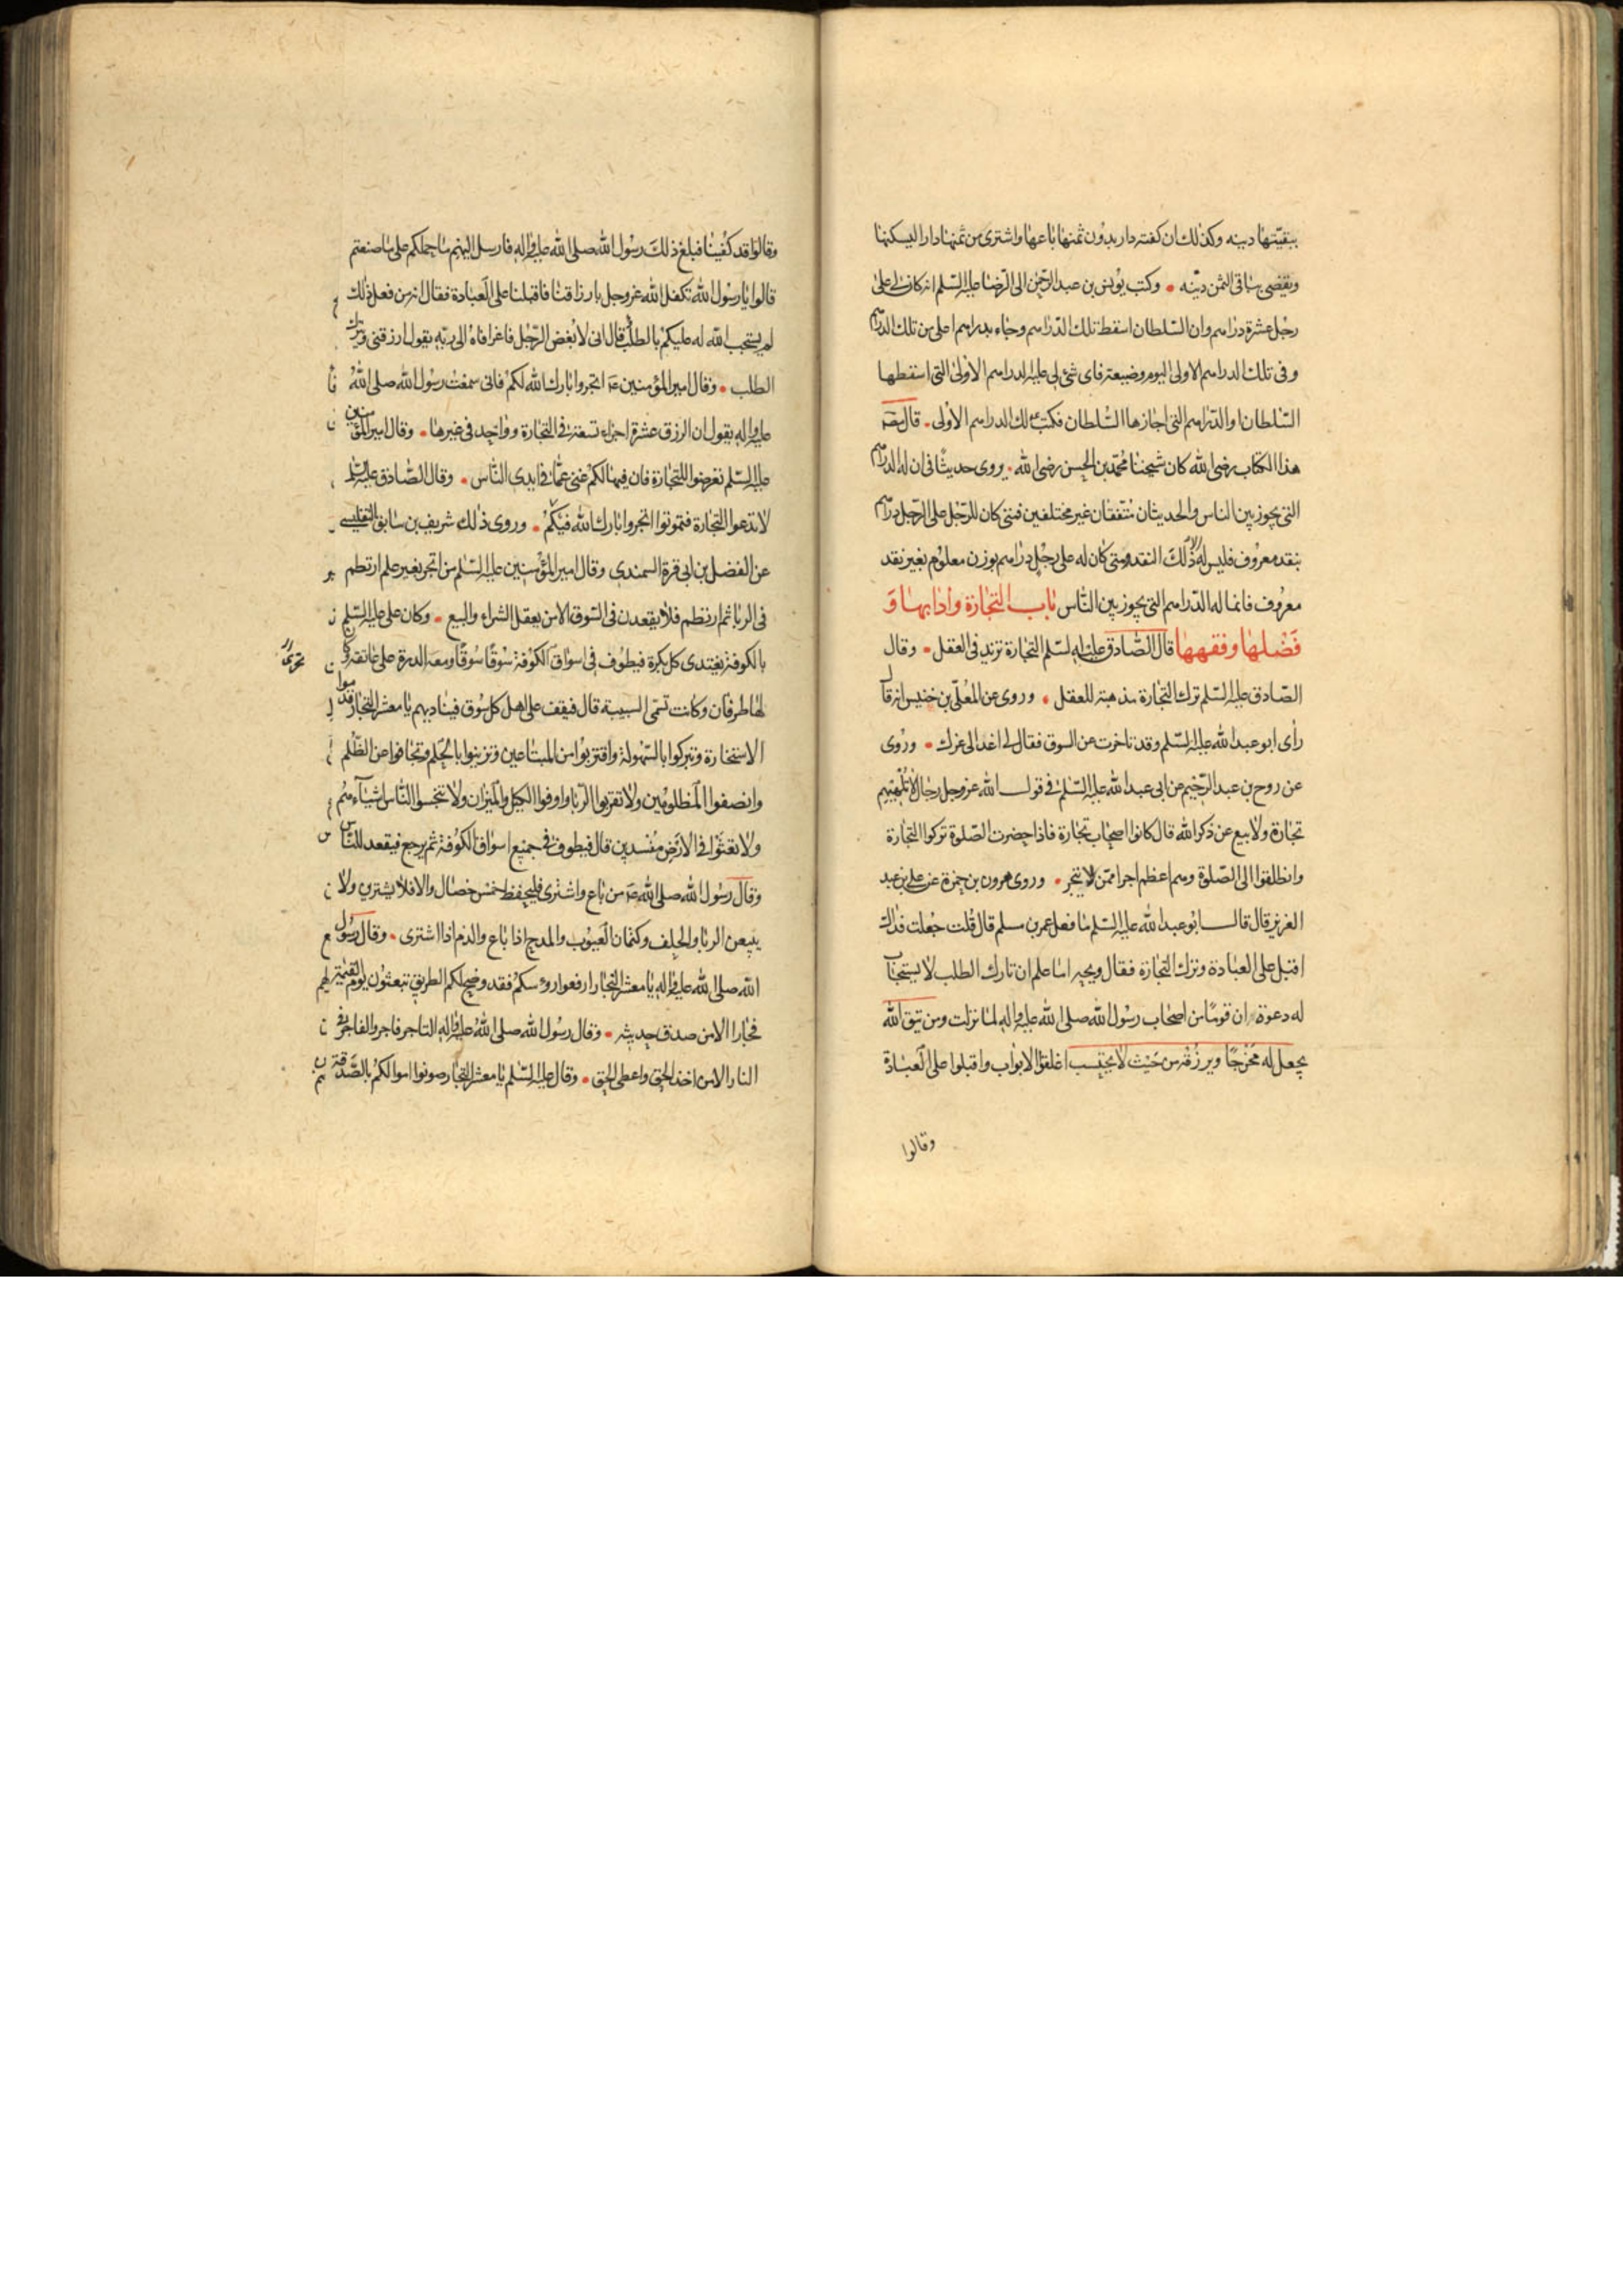 ببقيّتها دينه وكذلك ان كفته دار بدون ثمنها باعها واشترى من ثمنها دارا ليسكنها
ويقضى بباقى الثمن دينه وكتب يونس بن عبد الرحمن الى الرضا عليه السلم انه كان لى على
رجل عشرة دراهم وان السلطان اسقط تلك الدراهم وجاء بدراهم اعلى من تلك الدراهم
وفى تلك الدراهم الاولى اليوم وضيعة فاى شئ لى عليه الدراهم الاولى التى اسقطها
السّلطان او الدّراهم التى اجازها السّلطان فكتب لك الدراهم الاولى قال مص
هذا الكتاب رضى الله كان شيخنا محمّد بن الحسن رضى الله يروى حديثا فى ان له الدراهم
التى يجوز بين الناس والحديثان متّفقان غير مختلفين فمتى كان للرّجل على الرّجل دراهم
بنقد معروف فليس له الا ذلك النقد ومتى كان له على رجل دراهم بوزن معلوم بغير نقد
معروف فانما له الدّراهم التى يجوز بين النّاس باب التجارة وادابها وَ
فَضْلها وفقهها قال الصّادق عليه السّلم التجارة تزيد فى العقل وقال
الصّادق عليه السّلم ترك التجارة مذهبة للعقل وروى عن المعلّى بن خنيس انه قال
رأى ابو عبد الله عليه السّلم وقد تاخرت عن السوق فقال لى اغد الى عزك وروى
عن روح بن عبد الرّحيم عن ابى عبد الله عليه السّلم فى قول الله عزوجل رجال لا تلهيهم
تجارة ولا بيع عن ذكر الله قال كانوا اصحاب تجارة فاذا حضرت الصّلوة تركوا التجارة
وانطلقوا الى الصّلوة وهم اعظم اجرا ممّن لا يتّجر وروى هرون بن حمزة عن على بن عبد
العزيز قال قال ابو عبد الله عليه السّلم ما فعل عمر بن مسلم قال قلت جعلت فداك
اقبل على العبادة وترك التجارة فقال ويحه اما علم ان تارك الطلب لا يستجاب
له دعوة ان قومًا من اصحاب رسول الله صلى الله عليه واله لما نزلت ومن يتق الله
يجعل له مَخْرجًا ويرزقه من حَيْث لا يحتسب اغلقوا الابواب واقبلوا على العبادة
وقالوا
وقالوا قد كفينا فبلغ ذلك رسول الله صلى الله عليه واله فارسل اليهم ما حملكم على ما صنعتم
قالوا يا رسول الله تكفل الله عزوجل بارزاقنا فاقبلنا على العبادة فقال انه من فعل ذلك
لم يستجب الله له عليكم بالطلب قال انى لابغض الرّجل فاغرا فاه الى ربّه يقول ارزقنى ويترك
الطلب وقال امير المؤمنين ع اتجروا بارك الله لكم فانى سمعت رسول الله صلى الله
عليه واله يقول ان الرزق عشرة اجزاء تسعة فى التجارة وواحد فى غيرها وقال امير المؤمنين
عليه السّلم تعرضوا للتجارة فان فيها لكم غنى عمّا فى ايدى النّاس وقال الصّادق عليه السلم
لا تدعوا التجارة فتهونوا اتجروا بارك الله فيكم وروى ذلك شريف بن سابق التفليسى
عن الفضل بن ابى قرة السمندى وقال امير المؤمنين عليه السّلم من اتجر بغير علم ارتطم
فى الربا ثم ارتطم فلا يقعدن فى السّوق الا من يعقل الشراء والبيع وكان على عليه السّلم
بالكوفة يغتدى كل بكرة فيطوف فى اسواق الكوفة سوقًا سوقًا ومعه الدرة على عاتقه وكان
لها طرفان وكانت تسمّى السبيبة قال فيقف على اهل كل سوق فيناديهم يا معشر التجار قدموا
الاستخارة وتبركوا بالسّهولة واقتربوا من المبتاعين وتزينوا بالحلم وتجافوا عن الظّلم
وانصفوا المظلومين ولا تقربوا الرّبا واوفوا الكيل والميزان ولا تبخسوا النّاس اشياءهم
ولا تعثَوْا فى الارض مفسدين قال فيطوف فى جميع اسواق الكوفة ثم يرجع فيقعد للنّاس
وقال رسول الله صلى الله من باع واشترى فليحفظ خمس خصال والا فلا يشترى ولا
يبيعن الربا والحلف وكتمان العيوب والمدح اذا باع والذم اذا اشترى وقال رسول
الله صلى الله عليه واله يا معشر التجار ارفعوا رؤسكم فقد وضح لكم الطريق تبعثون يوم القيمة
فجارا الا من صدق حديثه وقال رسول الله صلى الله عليه واله التاجر فاجر والفاجر فى
النار الا من اخذ الحق واعطى الحق وقال عليه السّلم يا معشر التجار صونوا اموالكم بالصّدقة